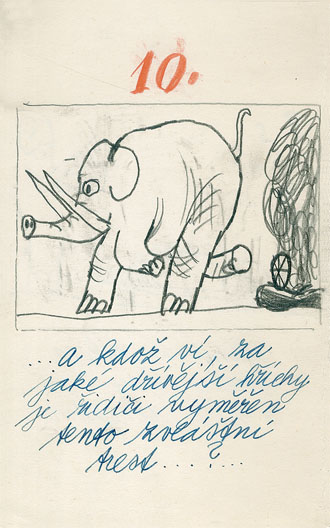 10.
...a kdož ví, za
jaké dřívější hříchy
je řidiči vyměřen
tento zvláštní
trest....?...